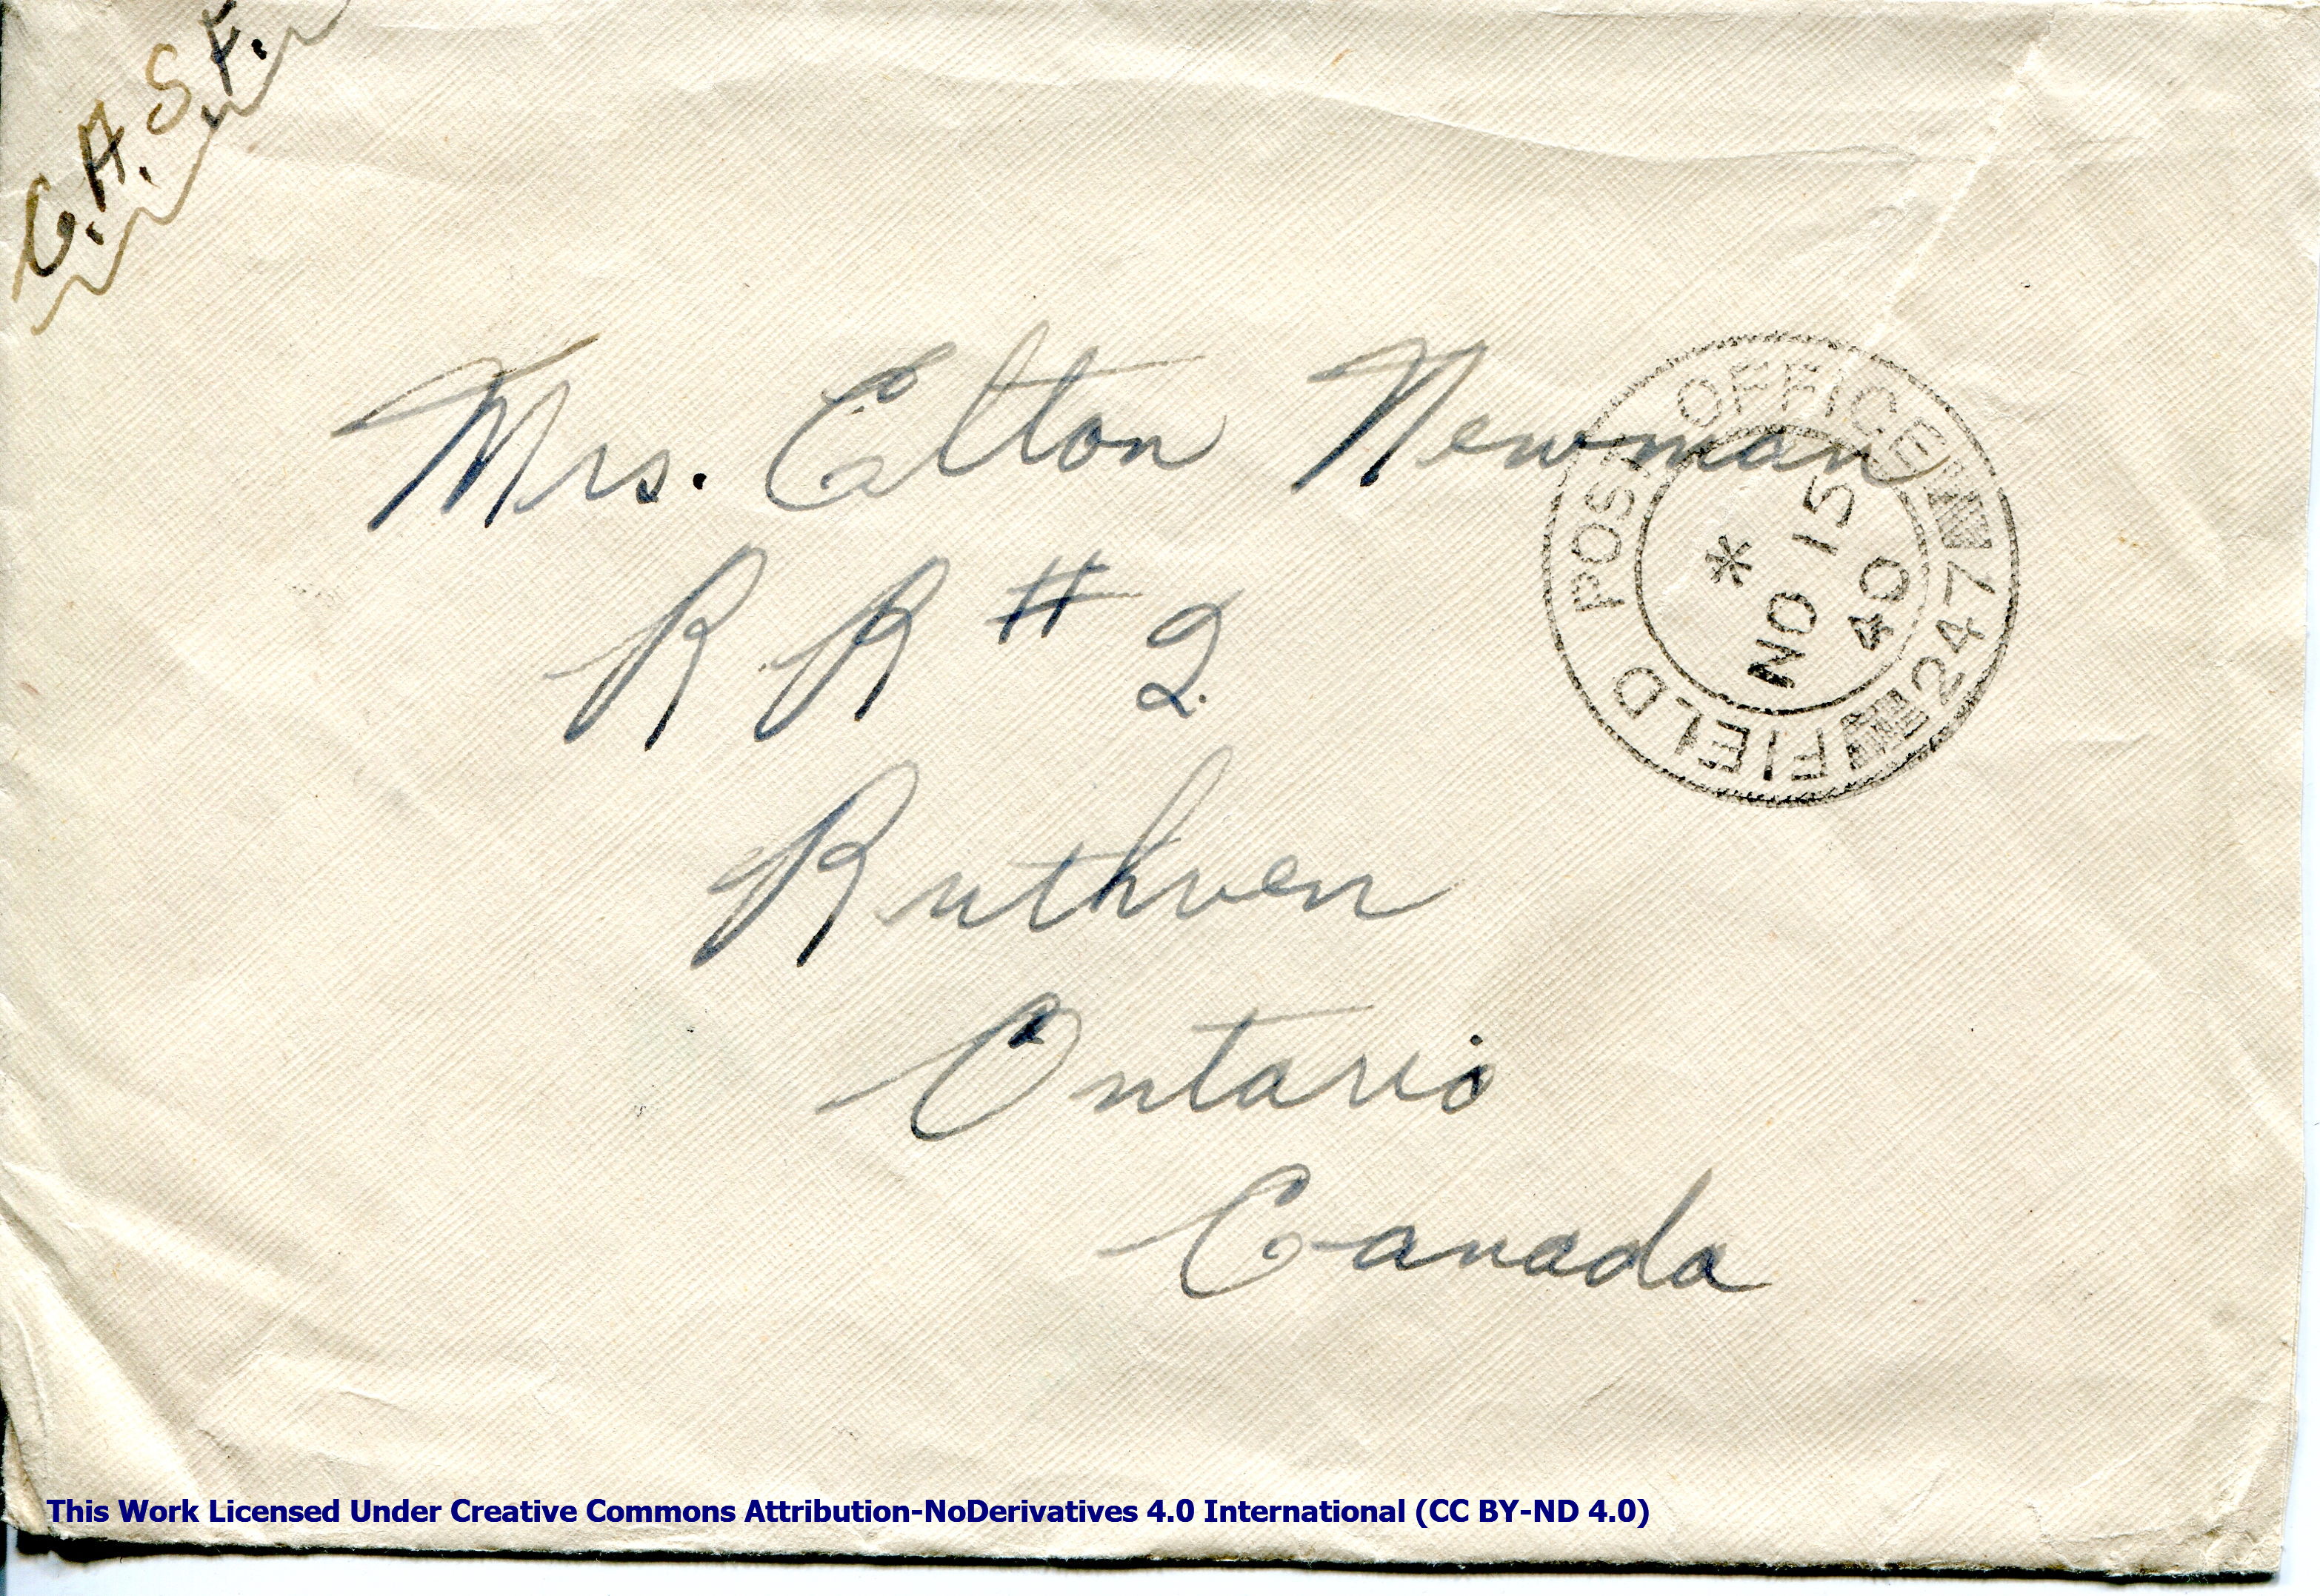 C.A.S.F.
Mrs. Elton Newman
R R # 2
Ruthven
Ontario
Canada
FIELD POST OFFICE 247
*
NO 15
40
This Work Licensed Under Creative Commons Attribution-NoDerivatives 4.0 International (CC BY-ND 4.0)